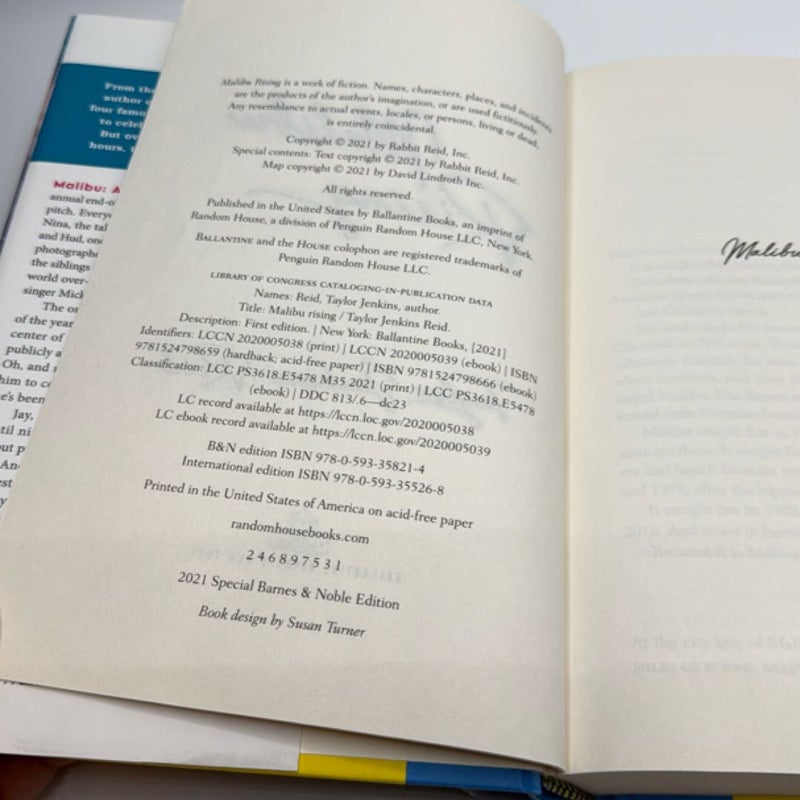 From the
author o
four famo
to celeb
But ov
hours, t
Malibu: A
annual end-o
pitch. Everyo
Nina, the tal
and Hud, one
photographe
the siblings
world over-
singer Mick
The on
of the year
center of
publicly a
Oh, and
him to co
e's been
Jay,
til ni
out p
An
est
Malibu Rising is a work of fiction. Names, characters, places, and incidents
are the products of the author's imagination, or are used fictitiously.
Any resemblance to actual events, locales, or persons, living or dead,
is entirely coincidental.
Copyright © 2021 by Rabbit Reid, Inc.
Special contents: Text copyright © 2021 by Rabbit Reid, Inc.
Map copyright © 2021 by David Lindroth Inc.
All rights reserved.
Published in the United States by Ballantine Books, an imprint of
Random House, a division of Penguin Random House LLC, New York.
BALLANTINE and the HOUSE colophon are registered trademarks of
Penguin Random House LLC.
LIBRARY OF CONGRESS CATALOGING-IN-PUBLICATION DATA
Names: Reid, Taylor Jenkins, author.
Title: Malibu rising / Taylor Jenkins Reid.
Description: First edition. | New York: Ballantine Books, [2021]
Identifiers: LCCN 2020005038 (print) | LCCN 2020005039 (ebook) | ISBN
9781524798659 (hardback; acid-free paper) | ISBN 9781524798666 (ebook)
Classification: LCC PS3618.E5478 M35 2021 (print) | LCC PS3618.E5478
(ebook) | DDC 813/.6—dc23
LC record available at https://lccn.loc.gov/2020005038
LC ebook record available at https://lccn.loc.gov/2020005039
B&N edition ISBN 978-0-593-35821-4
International edition ISBN 978-0-593-35526-8
Printed in the United States of America on acid-free paper
randomhousebooks.com
2 4 6 8 9 7 5 3 1
2021 Special Barnes & Noble Edition
Book design by Susan Turner
Malibu